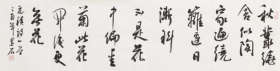 秋叢繞
舍似陶
家遍繞
籬邊日
漸斜
不是花
中偏愛
菊此花
開盡更
無花